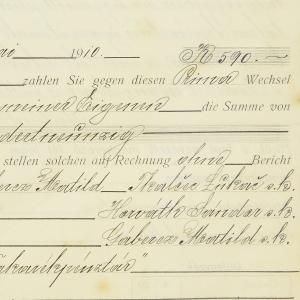 ai 1910. K 590.—
zahlen Sie gegen diesen Prima Wechsel
meiner Eigenen die Summe von
dertneunzig
stellen solchen auf Rechnung ohne Bericht
Matild Lukač s.k.
Horváth Sándor s.k.
Gáberez Matild s.k.
takarékpénztár"